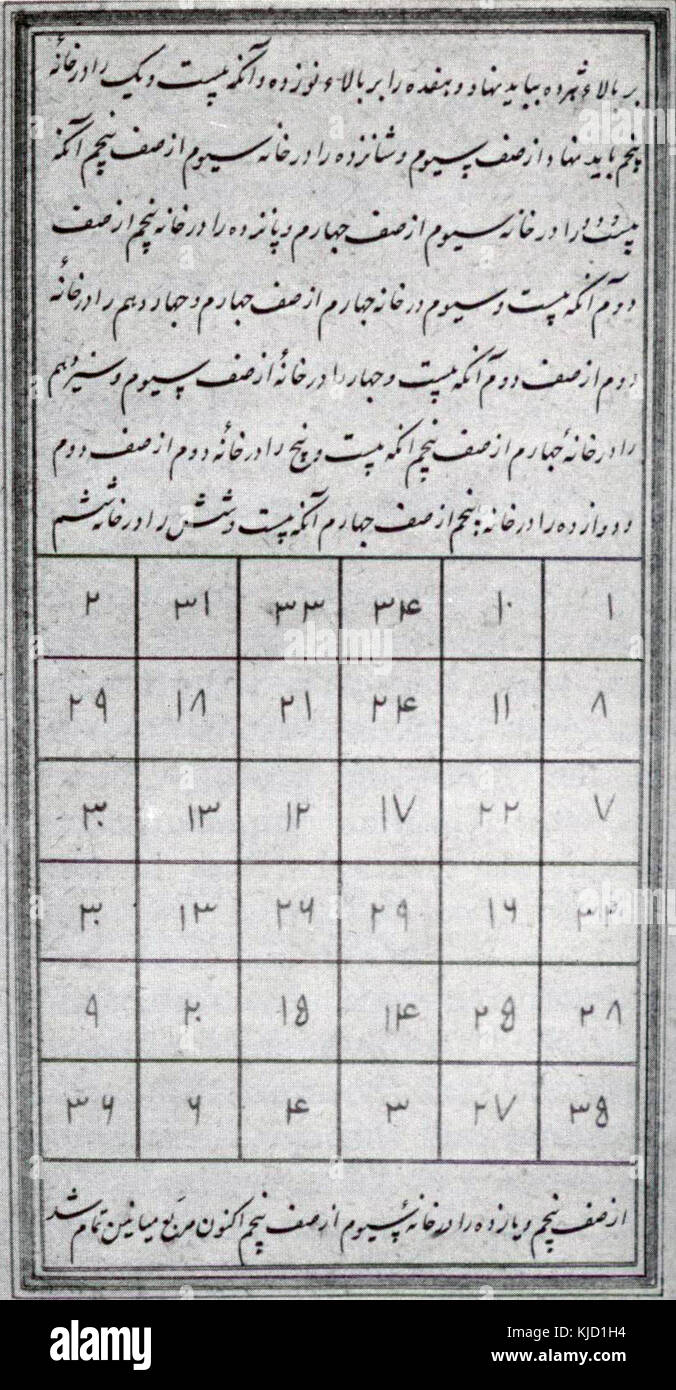 بر بالاء هژده بباید نهاد و هفده را بر بالاء نوزده و آنکه بیست و یک را در خانهٔ
پنجم باید نهاد از صف سیوم و شانزده را در خانه سیوم از صف پنجم آنکه
بیست و دو را در خانه سیوم از صف چهارم و پانزده را در خانه پنجم از صف
دوم آنکه بیست و سیوم در خانه چهارم از صف چهارم و چهاردهم را در خانهٔ
دوم از صف دوم آنکه بیست و چهار را در خانهٔ از صف سیوم و سیزدهم
را در خانهٔ چهارم از صف پنجم آنکه بیست و پنج را در خانهٔ دوم از صف دوم
دوازده را در خانه پنجم از صف چهارم آنکه بیست و شش را در خانه ششم
۱ ۱۰ ۳۴ ۳۳ ۳۱ ۲
۸ ۱۱ ۲۴ ۲۱ ۱۸ ۲۹
۷ ۲۲ ۱۷ ۱۲ ۱۳ ۳۰
۳۲ ۱۶ ۲۹ ۲۶ ۱۳ ۳۰
۲۸ ۲۵ ۱۴ ۱۵ ۲۰ ۹
۳۵ ۲۷ ۳ ۴ ۶ ۳۶
از صف پنجم و یازده را در خانه سیوم از صف پنجم اکنون مربع میانین تمام شد
alamy
Image ID: KJD1H4
www.alamy.com